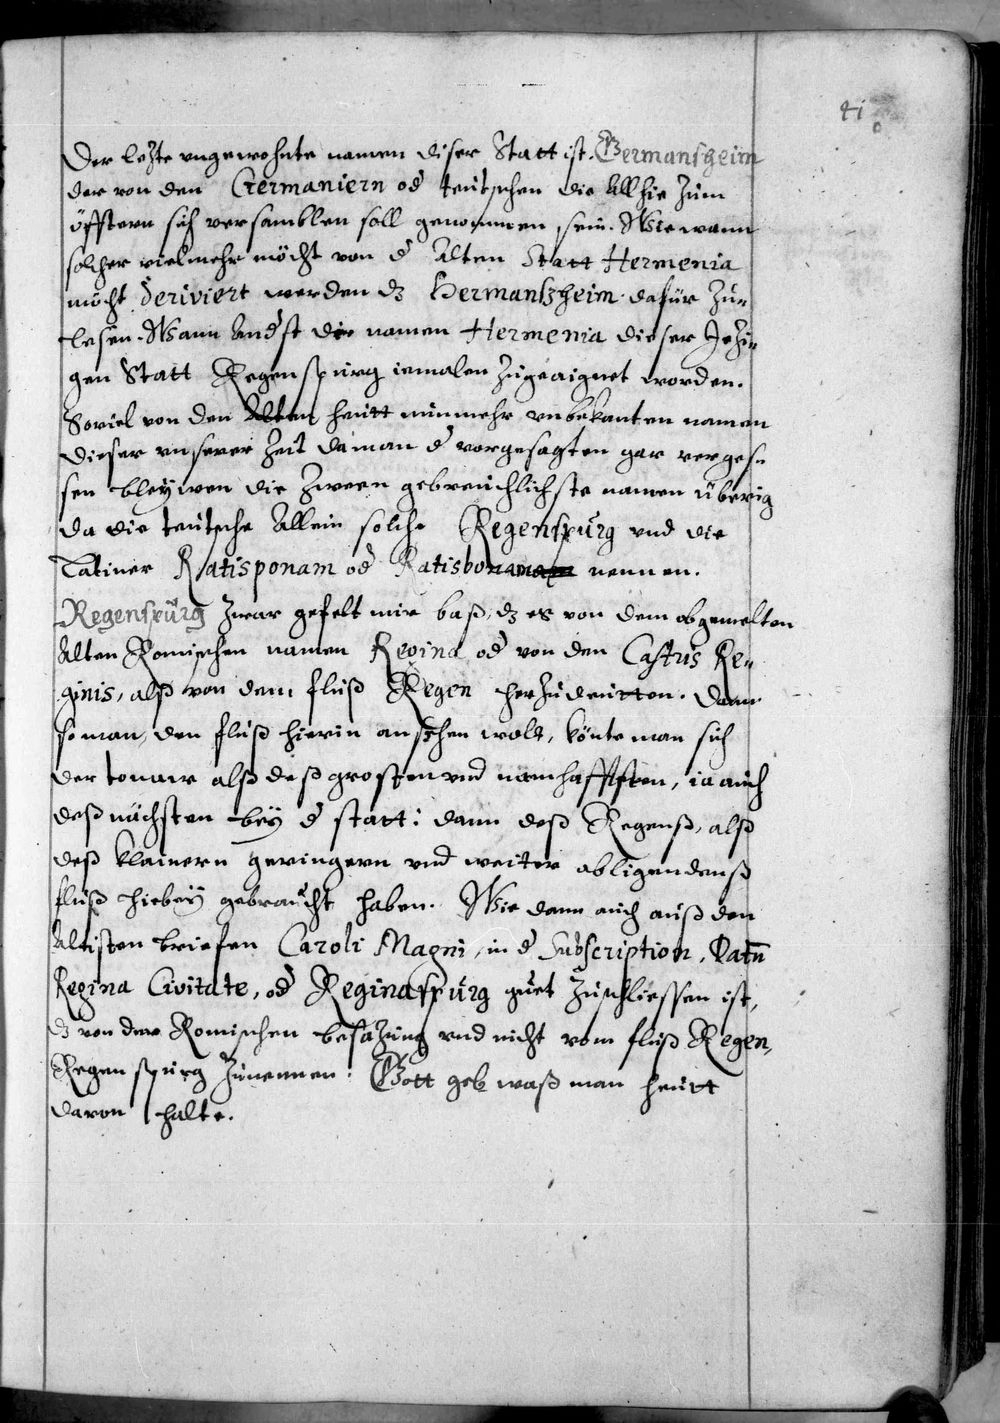 41
Der lezte ungewohnte namen diser Statt ist. Germansheim
der von den Germaniern od teutschen die Allhie zum
öfftern sich versamblen soll genommen sein. Wiewann
solcher vielmehr möcht von d Alten Statt Hermenia
möcht deriviert werden dz Hermanszheim dafür zu„
lesen. Wann Andst die namen Hermenia dieser Jezi„
gen Statt Regenspurg iemalen zugeaignet worden.
Soviel von den Alten heutt nunmehr unbekanten namen
dieser unserer Zeit da man d vorgesagten gar verges„
sen bleywen die zween gebreuchlichste namen überig
da die teutsche Allein solche Regenspurg und die
Latiner Ratisponam od Ratisbonam nennen.
Regenspurg zwar gefelt mir baß, dz es von dem obgemelten
Alten Romischen namen Regina od von den Castris Re„
ginis, alß von dem fluß Regen herzudeutten. Dann
so man, den fluß hierin ansehen wolt, könte man sich
der tonaw alß deß grosten und namhafftsten, ia auch
deß nächsten bey d statt: dann deß Regenß, alß
deß klainern geringern und weiter abligendenß
fluß hiebey gebraucht haben. Wie dann auch auß den
Altisten briefen Caroli Magni, in d Subscription, Datū
Regina Civitate, od Reginaspurg guet zuschliessen ist,
dz von der Romischen besazung und nicht vom fluß Regen,
Regenspurg zunennen. Gott geb waß man heutt
darvon halte.